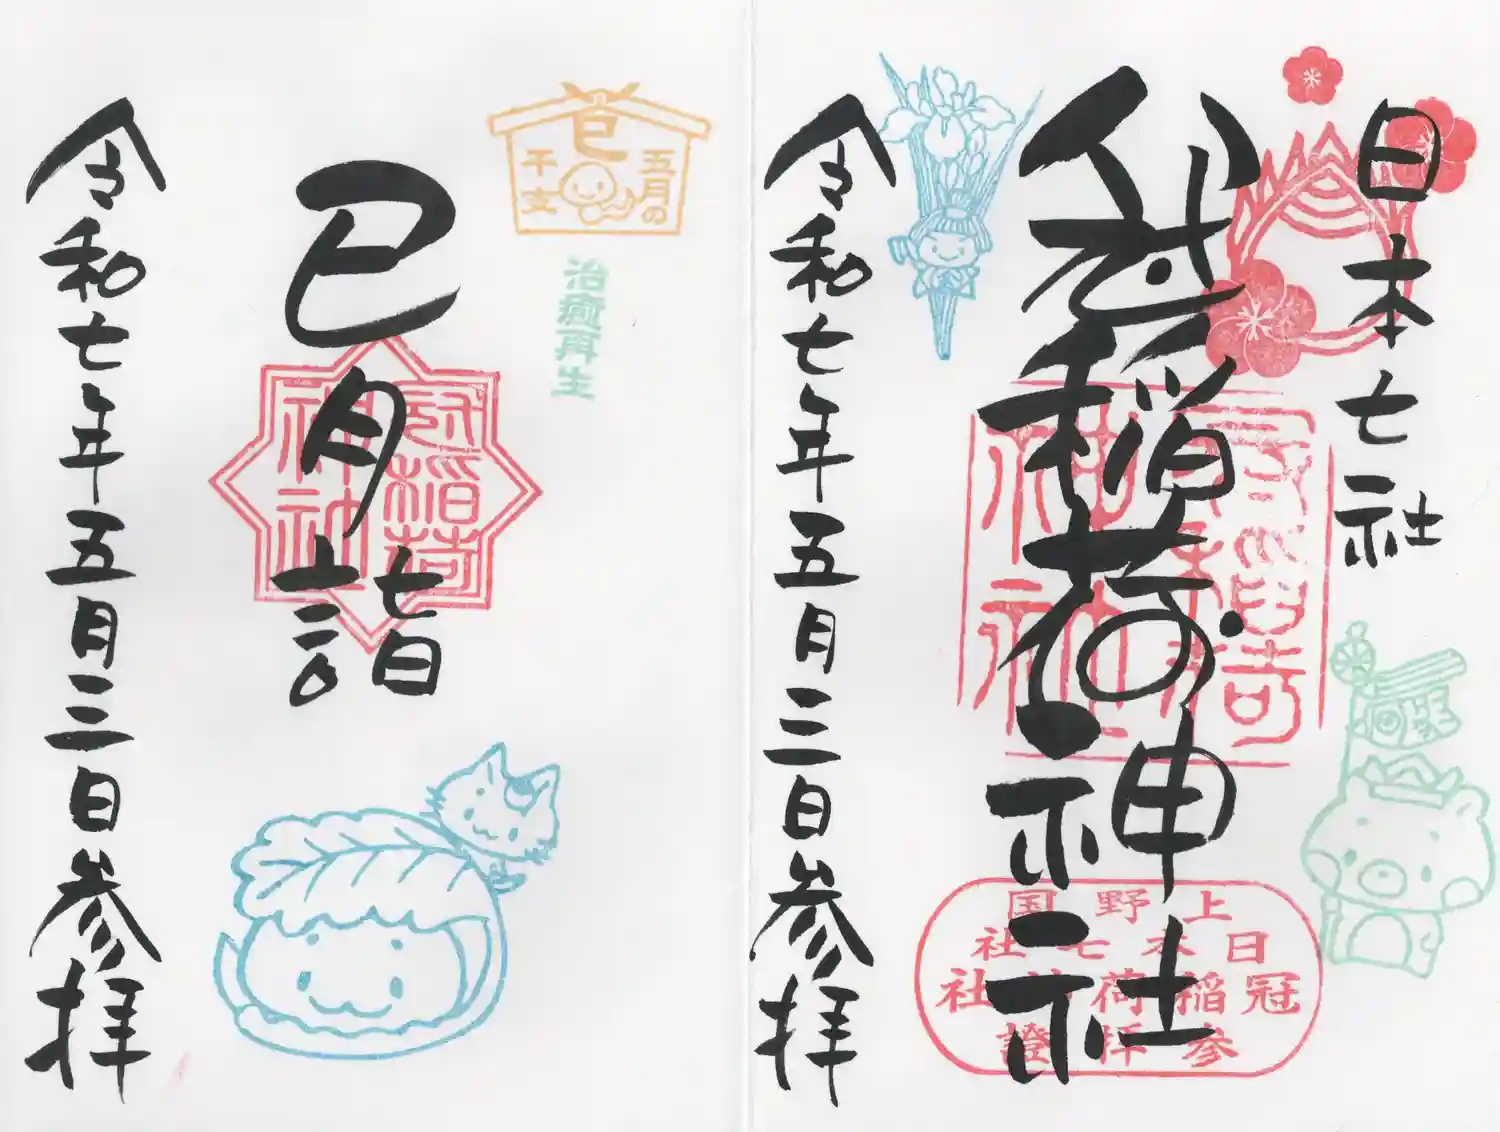 日本七社
冠稲荷神社
令和七年五月三日参拝
冠稲荷神社
上野国
日本七社
冠稲荷神社
参拝證
五月の
巳
干支
治癒再生
巳月詣
冠稲荷神社
令和七年五月三日参拝